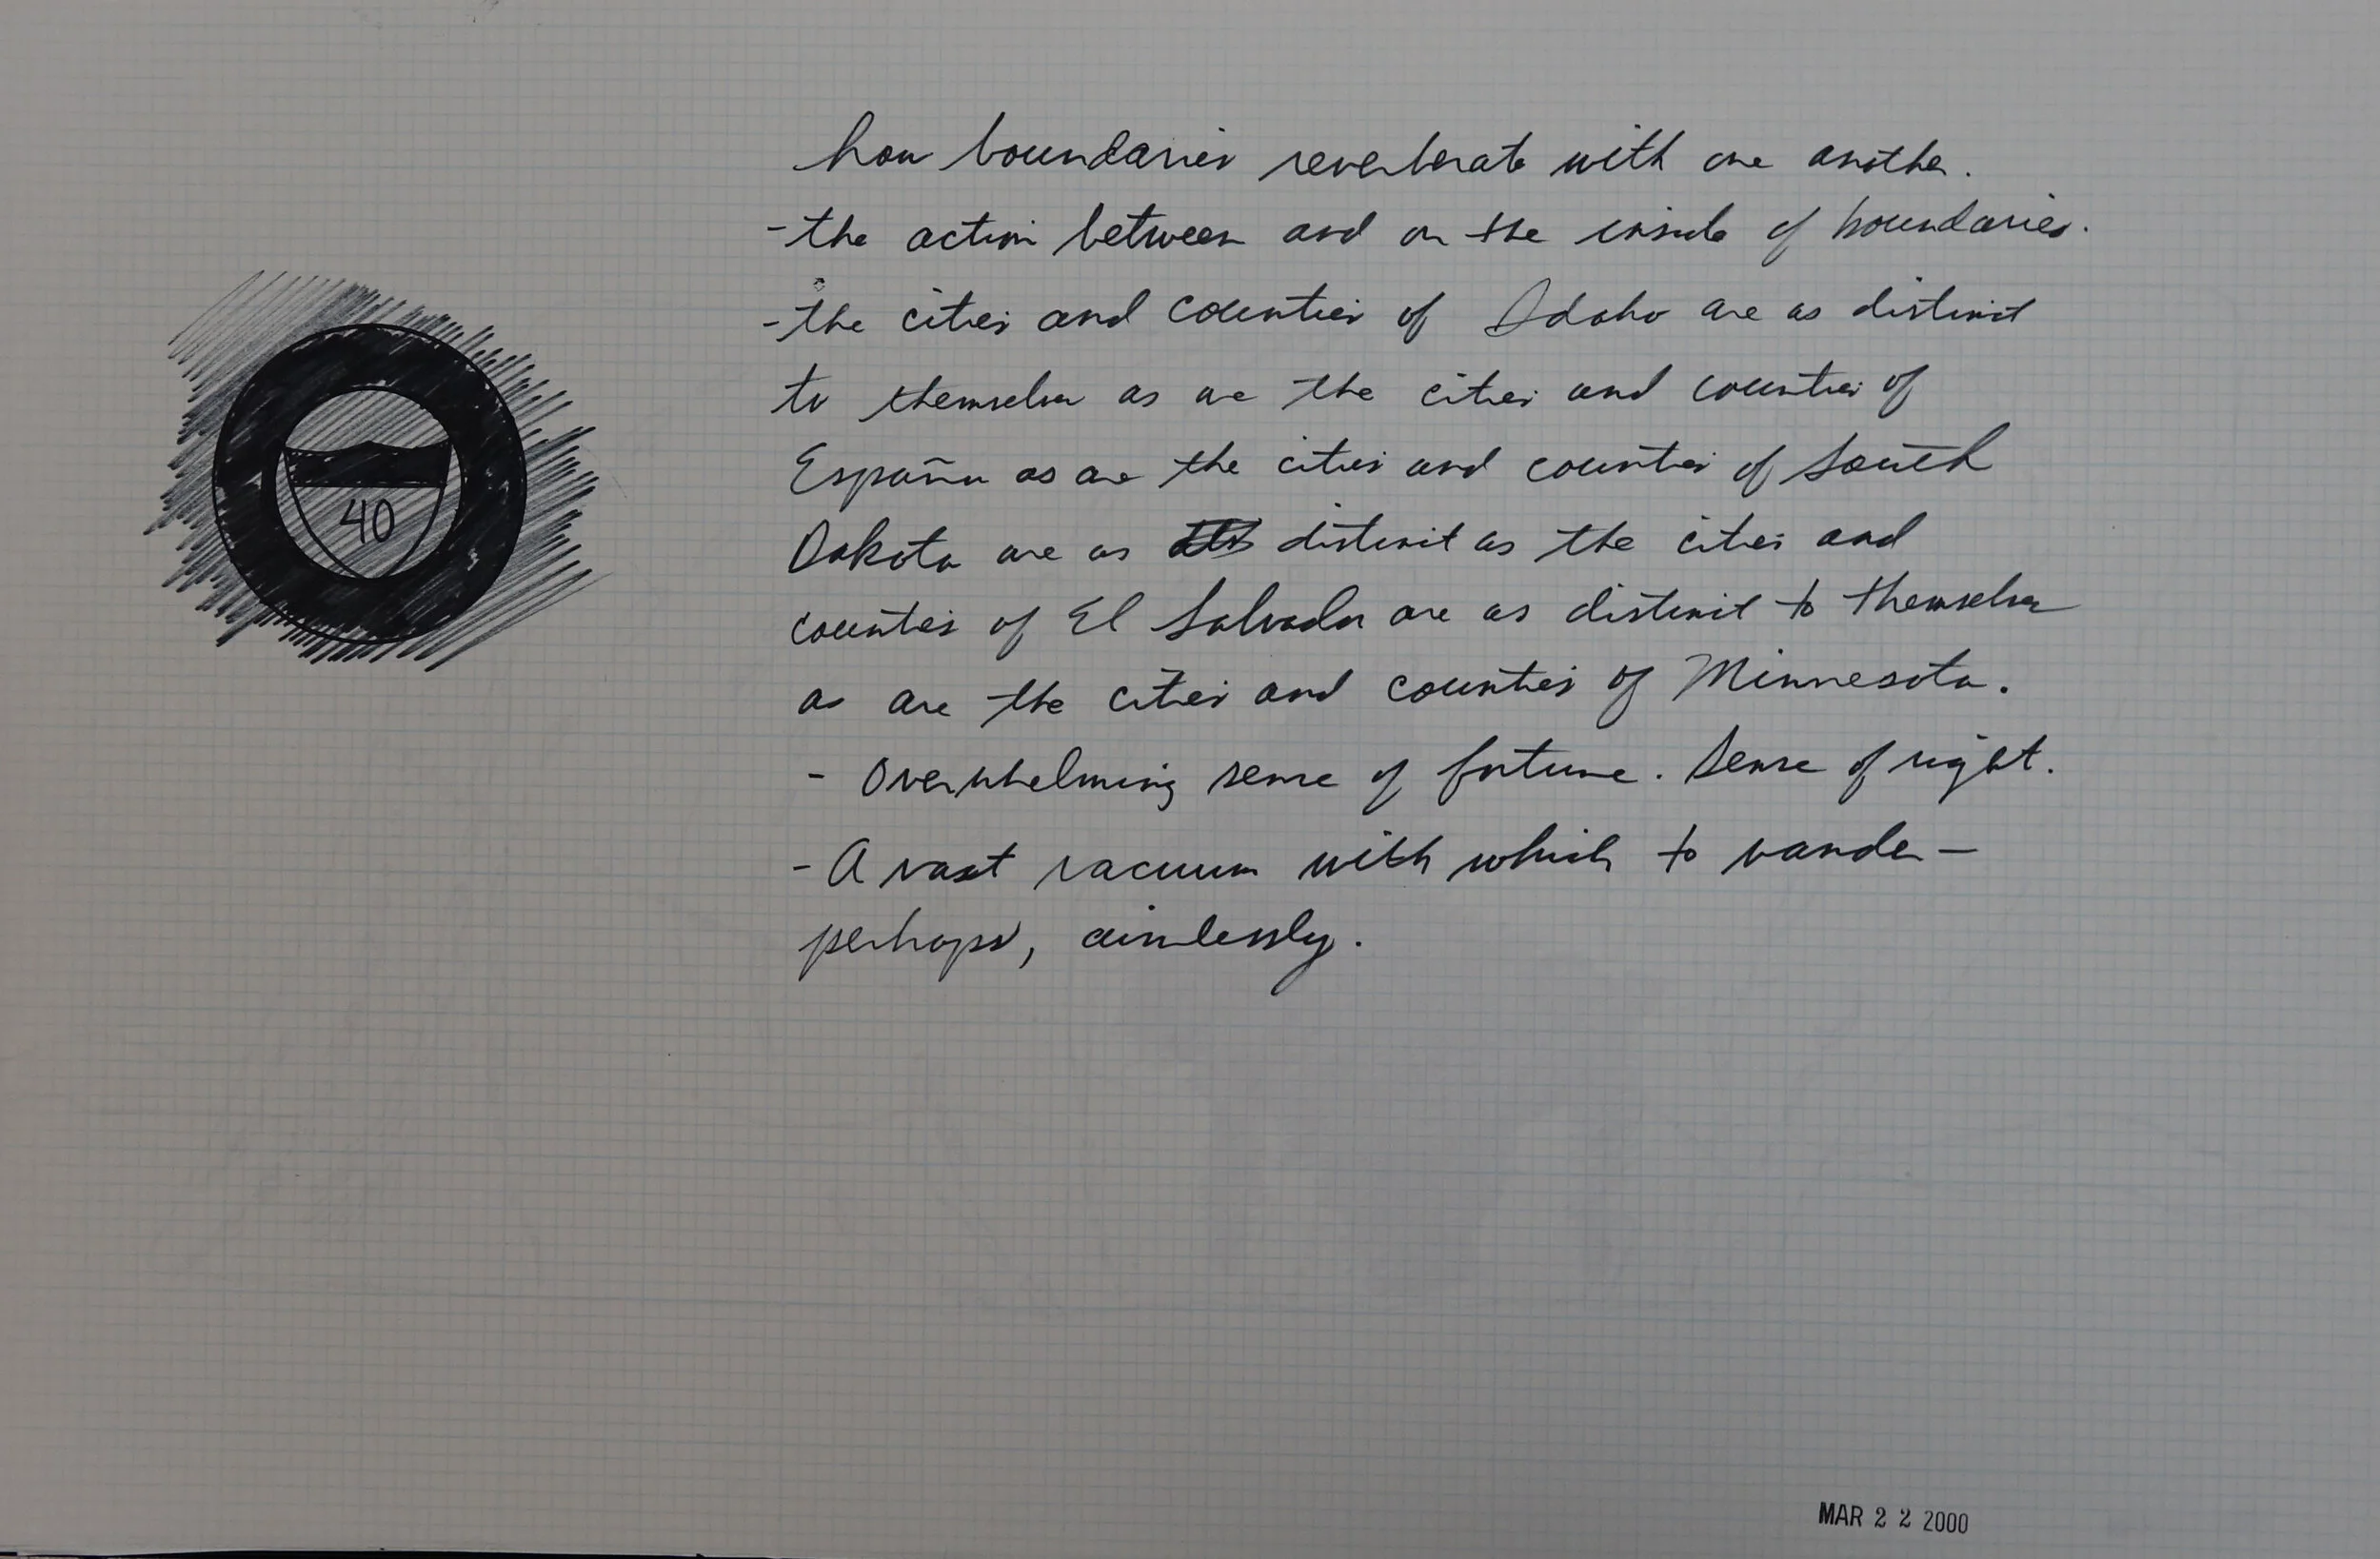 how boundaries reverberate with one another.
- the action between and on the inside of boundaries.
- the cities and counties of Idaho are as distinct
to themselves as are the cities and counties of
España as are the cities and counties of South
Dakota are as distinct as the cities and
counties of El Salvador are as distinct to themselves
as are the cities and counties of Minnesota.
- Overwhelming sense of fortune. Sense of right.
- A vast vacuum with which to wander -
perhaps, aimlessly.
40
MAR 22 2000